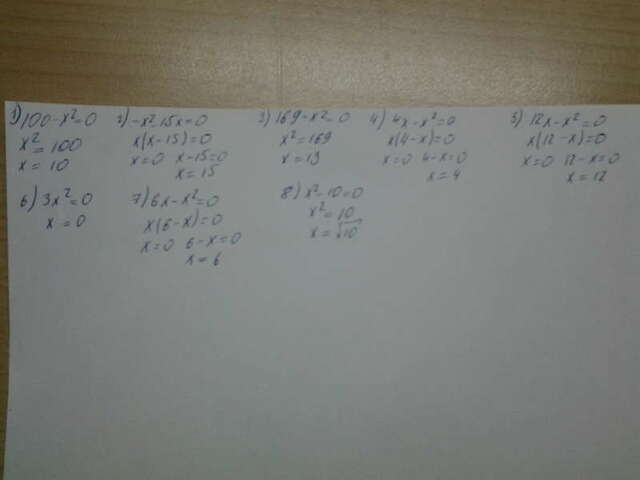 1) 100-x²=0
x²=100
x=10
2) -x² 15x=0
x(x-15)=0
x=0 x-15=0
x=15
3) 169-x²=0
x²=169
x=13
4) 4x-x²=0
x(4-x)=0
x=0 4-x=0
x=4
5) 12x-x²=0
x(12-x)=0
x=0 12-x=0
x=12
6) 3x²=0
x=0
7) 6x-x²=0
x(6-x)=0
x=0 6-x=0
x=6
8) x²-10=0
x²=10
x=√10